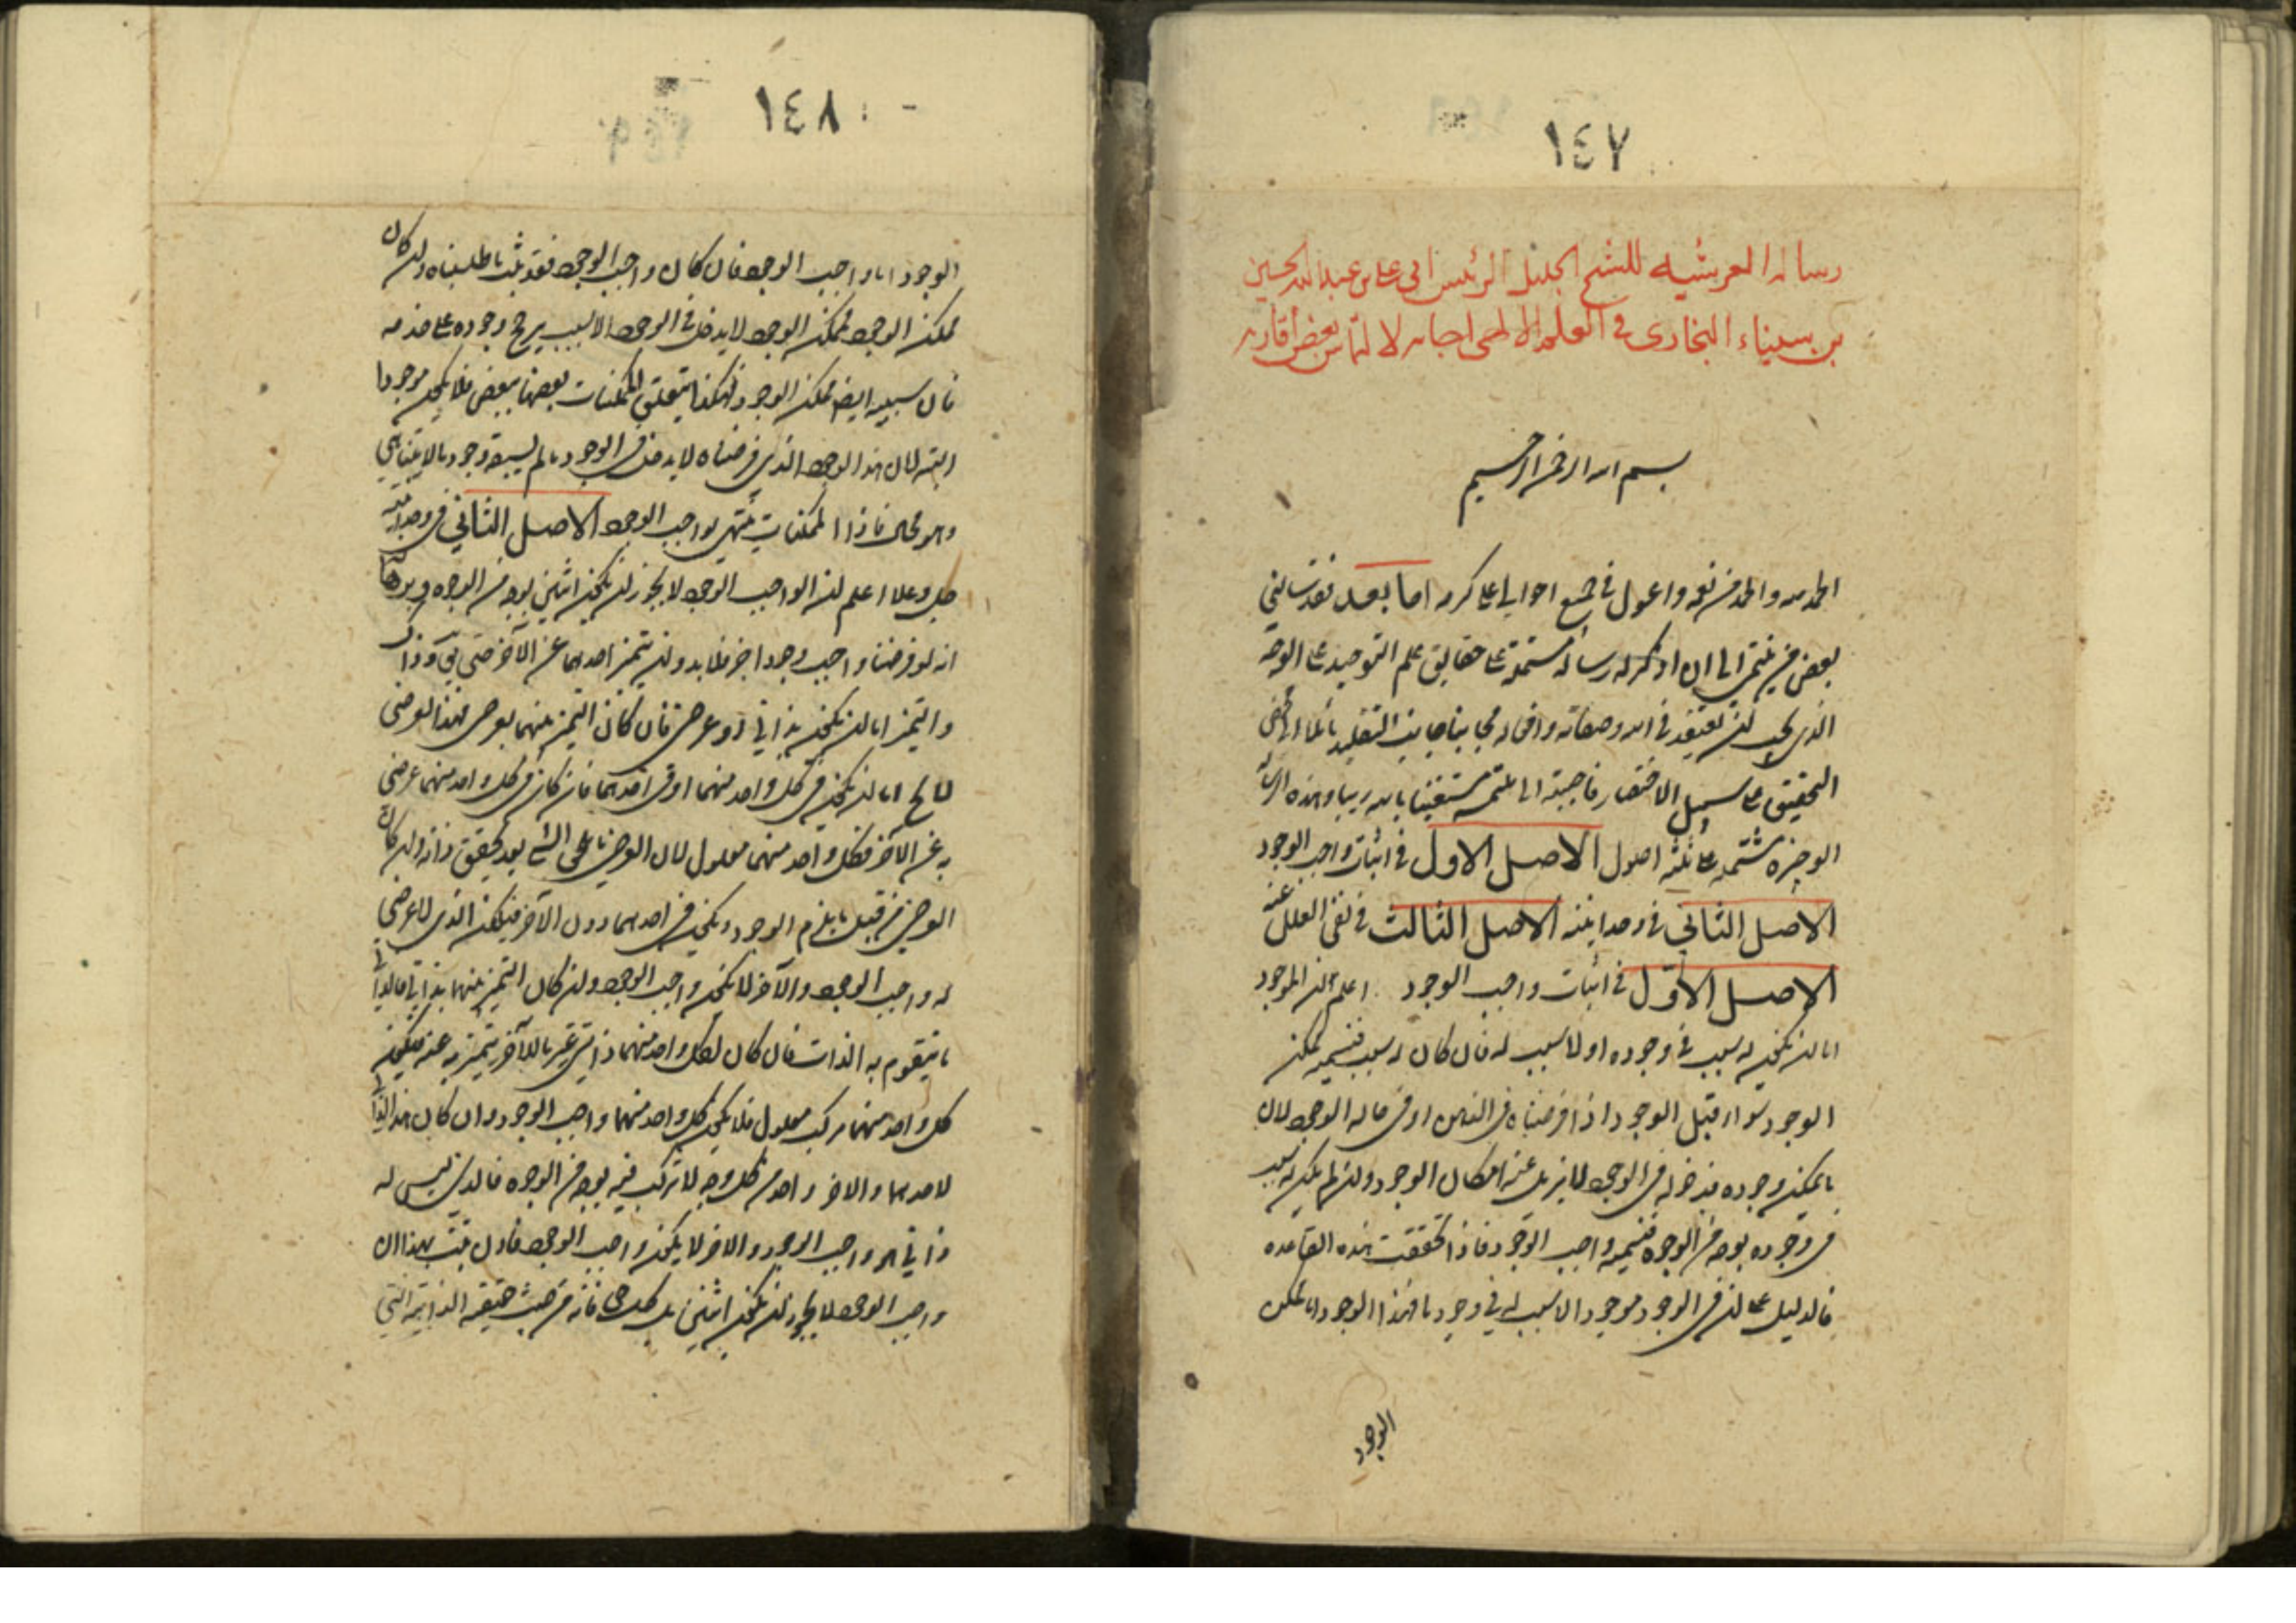 ١٤٧
رسالة العرشيه للشيخ الجليل الرئيس ابي على بن عبد الله الحسين
بن سيناء البخارى في العلم الالهى اجابه لالتماس بعض أقاربه
بسم الله الرحمن الرحيم
الحمد لله والحمد من نعمه واعول في جميع احوالي على كرمه اما بعد فقد سألني
بعض من ينتمى الي ان اذكر له رسالة مشتملة على حقايق علم التوحيد على الوجه
الذى يجب ان يعتقد في الله وصفاته وافعاله مجانبا جانب التقليد مائلا الى محض
التحقيق على سبيل الاختصار فاجبته الى ملتمسه مستعينا بالله ربنا وهذه الرسالة
الوجيزة مشتمله على ثلثه اصول الاصل الاول في اثبات واجب الوجود
الاصل الثاني في وحدانيته الاصل الثالث في نفى العلل عنه
الاصل الاوّل في اثبات واجب الوجود اعلم ان الموجود
اما ان يكون له سبب في وجوده او لا سبب له فان كان له سبب فنسميه ممكن
الوجود سواء قبل الوجود اذا فرضناه في الذهن او في حالة الوجود لان
ما يمكن وجوده فدخوله في الوجود لا يزيل عنه امكان الوجود وان لم يكن له سبب
في وجوده بوجه من الوجوه فنسميه واجب الوجود فاذا تحققت هذه القاعده
فالدليل على ان في الوجود موجودا لا سبب له في وجوده ما فهذا الوجود اما ممكن
الوجود
١٤٨
الوجود اما واجب الوجود فان كان واجب الوجود فقد ثبت ما طلبناه وان كان
ممكن الوجود فممكن الوجود لا يدخل في الوجود الا بسبب يرجح وجوده على عدمه
فان سببه ايضا ممكن الوجود فهكذا يتعلق الممكنات بعضها ببعض فلا يكون موجودا
البته لان هذا الوجود الذي فرضناه لا يدخل في الوجود ما لم يسبقه وجود ما لا يتناهي
وهو محال فاذا الممكنات ينتهي بواجب الوجود الاصل الثاني في وحدانيته
جل وعلا اعلم ان الواجب الوجود لا يجوز ان يكون اثنين بوجه من الوجوه وبرهانه
انه لو فرضنا واجب وجود اخر فلا بد وان يتميز احدهما عن الآخر حتى يقال هذا او ذاك
والتميز اما ان يكون بذاتي او عرضي فان كان التميز بينهما بعرضي فهذا العرضي
لا يخ اما ان يكون في كل واحد منهما او في احدهما فان كان في كل واحد منهما عرضي
به عن الآخر فكل واحد منهما معلول لان العرضي ما يلحق الشيء بعد تحقق ذاته وان كان
العرضي من قبيل ما يلزم الوجود ويكون في احدهما دون الآخر فيكون الذي لا عرضي
له واجب الوجود والآخر لا يكون واجب الوجود وان كان التميز بينهما بذاتي فالذاتي
ما يتقوم به الذات فان كان لكل واحد منهما ذاتي غير ما للآخر يتميز به عنه فيكون
كل واحد منهما مركب معلول فلا يكون كل واحد منهما واجب الوجود وان كان هذا الذاتي
لاحدهما والاخر واحد من كل وجه لا تركيب فيه بوجه من الوجوه فالذي ليس له
ذاتي هو واجب الوجود والاخر لا يكون واجب الوجود فاذن ثبت بهذا ان
واجب الوجود لا يجوز ان يكون اثنين بل كل حق فانه من حيث حقيقته الذاتية التي